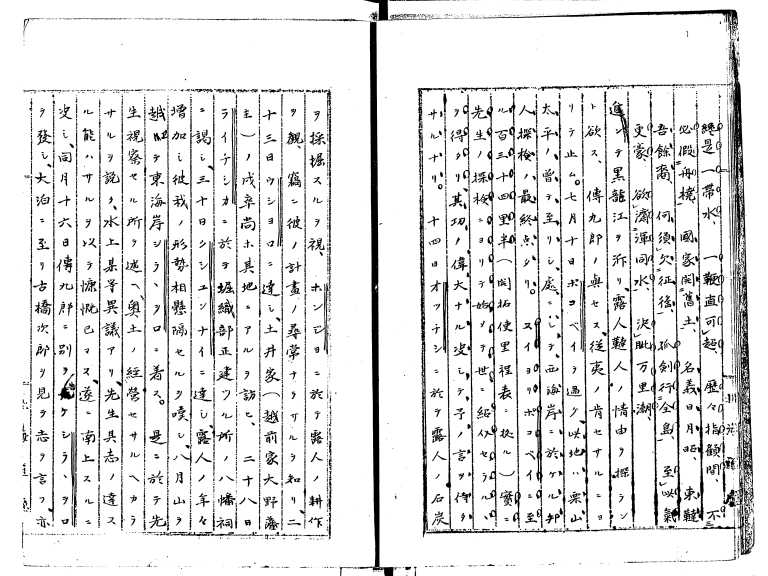 終是一帶水、一鞭直可超、歷々指顧間、不
必假舟檝、國家開舊土、名義日月昭、東韃
吾餘裔、何須欠征後、孤劍行全島、至此氣
更豪、欲濟渾同水、決眦万里潮、
進ンテ黒龍江ヲ泝リ露人韃人ノ情由ヲ探ラン
ト欲ス、傳九郎ノ與セス、從夷ノ肯セサルニヨ
リテ止ム。七月十日ホコベイヲ過ク此地ハ栗山
太平ノ曾テ至リシ處ニシテ西海岸ニ於ケル邦
人探検ノ最終点タリ。スイヨリホコベイニ至
ル百三十四里半(開拓使里程表ニ拠ル)實ニ
先生ノ探検ニヨリテ始メテ世ニ紹介セラルヽ
ヲ得タリ其功ノ偉大ナル決シテ予ノ言ヲ俟タ
サルナリ。十四日オツチシニ於テ露人ノ石炭
ヲ採掘スルヲ視、ホンビヨニ於テ露人ノ耕作
ヲ観、竊ニ彼ノ計畫ノ尋常ナラサルヲ知リ、二
十三日ウシヨロニ達シ、土井家(越前家大野藩
主)ノ戍卒尚ホ其地ニアルヲ訪ヒ、二十八日
ライチシカニ於テ堀織部正建ツル所ノ八幡祠
ニ謁シ、三十日クシユンナイニ達シ、露人ノ年々
増加シ彼我ノ形勢相懸隔セルヲ嘆シ、八月山ヲ
越ヘテ東海岸シララヲロニ着ス。是ニ於テ先
生視察セル所ヲ述ヘ、奥土ノ経營セサルヘカラ
サルヲ説ク、水上某等異議アリ先生其志ノ達ス
ル能ハサルヲ以テ慷慨已マス、遂ニ南上スルニ
決シ、同月十六日傳九郎ニ別ヲ
ヲ發シ、大泊ニ至リ古橋次郎ヲ見テ志ヲ言フ、亦